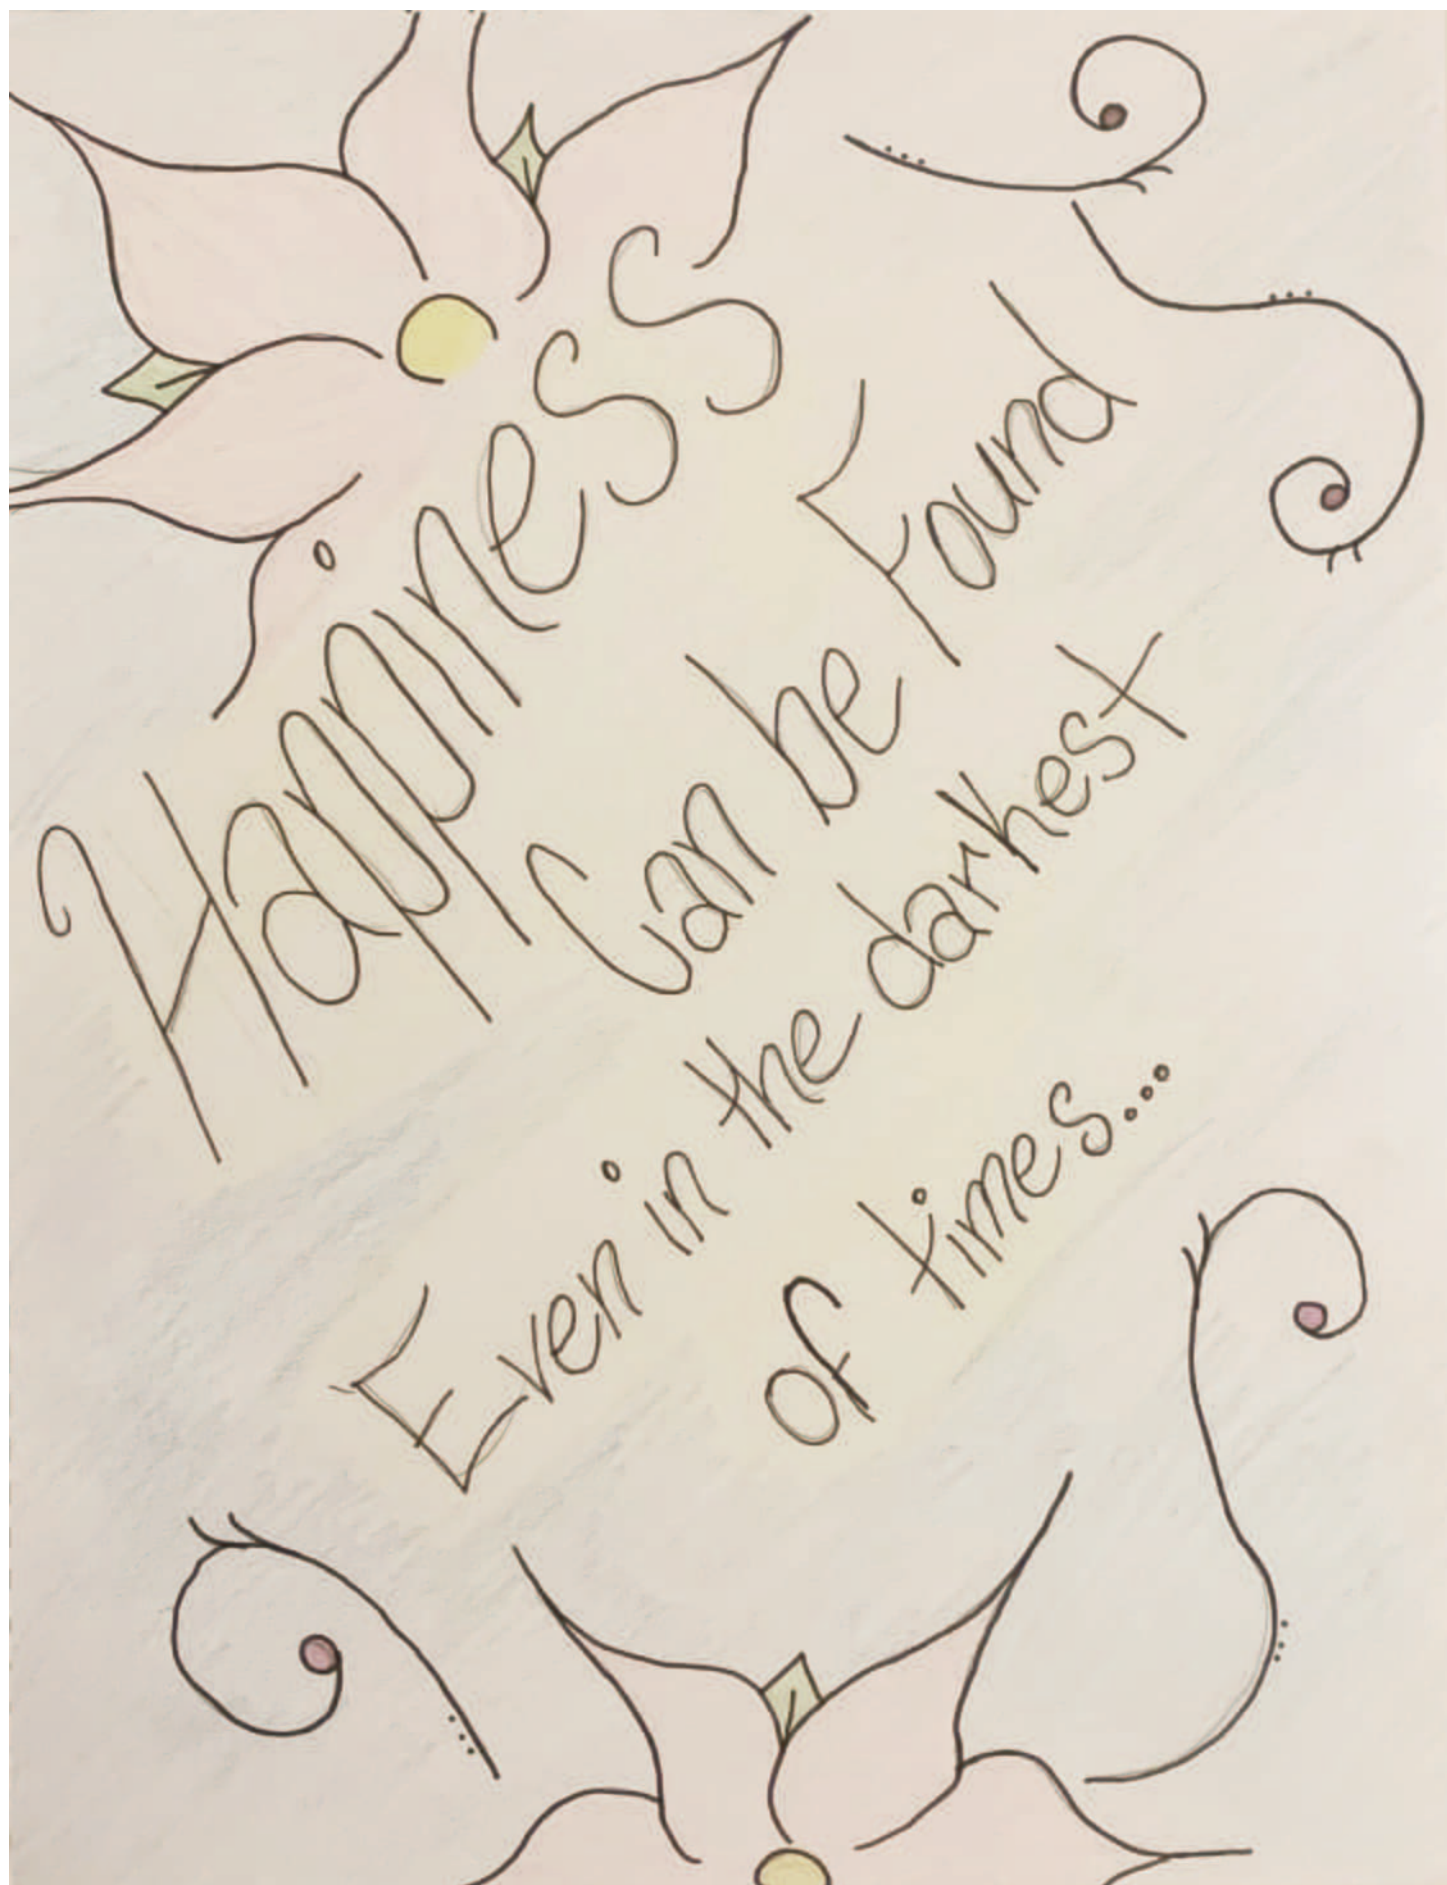 Happiness
Can be Found
Even in the darkest
of times...